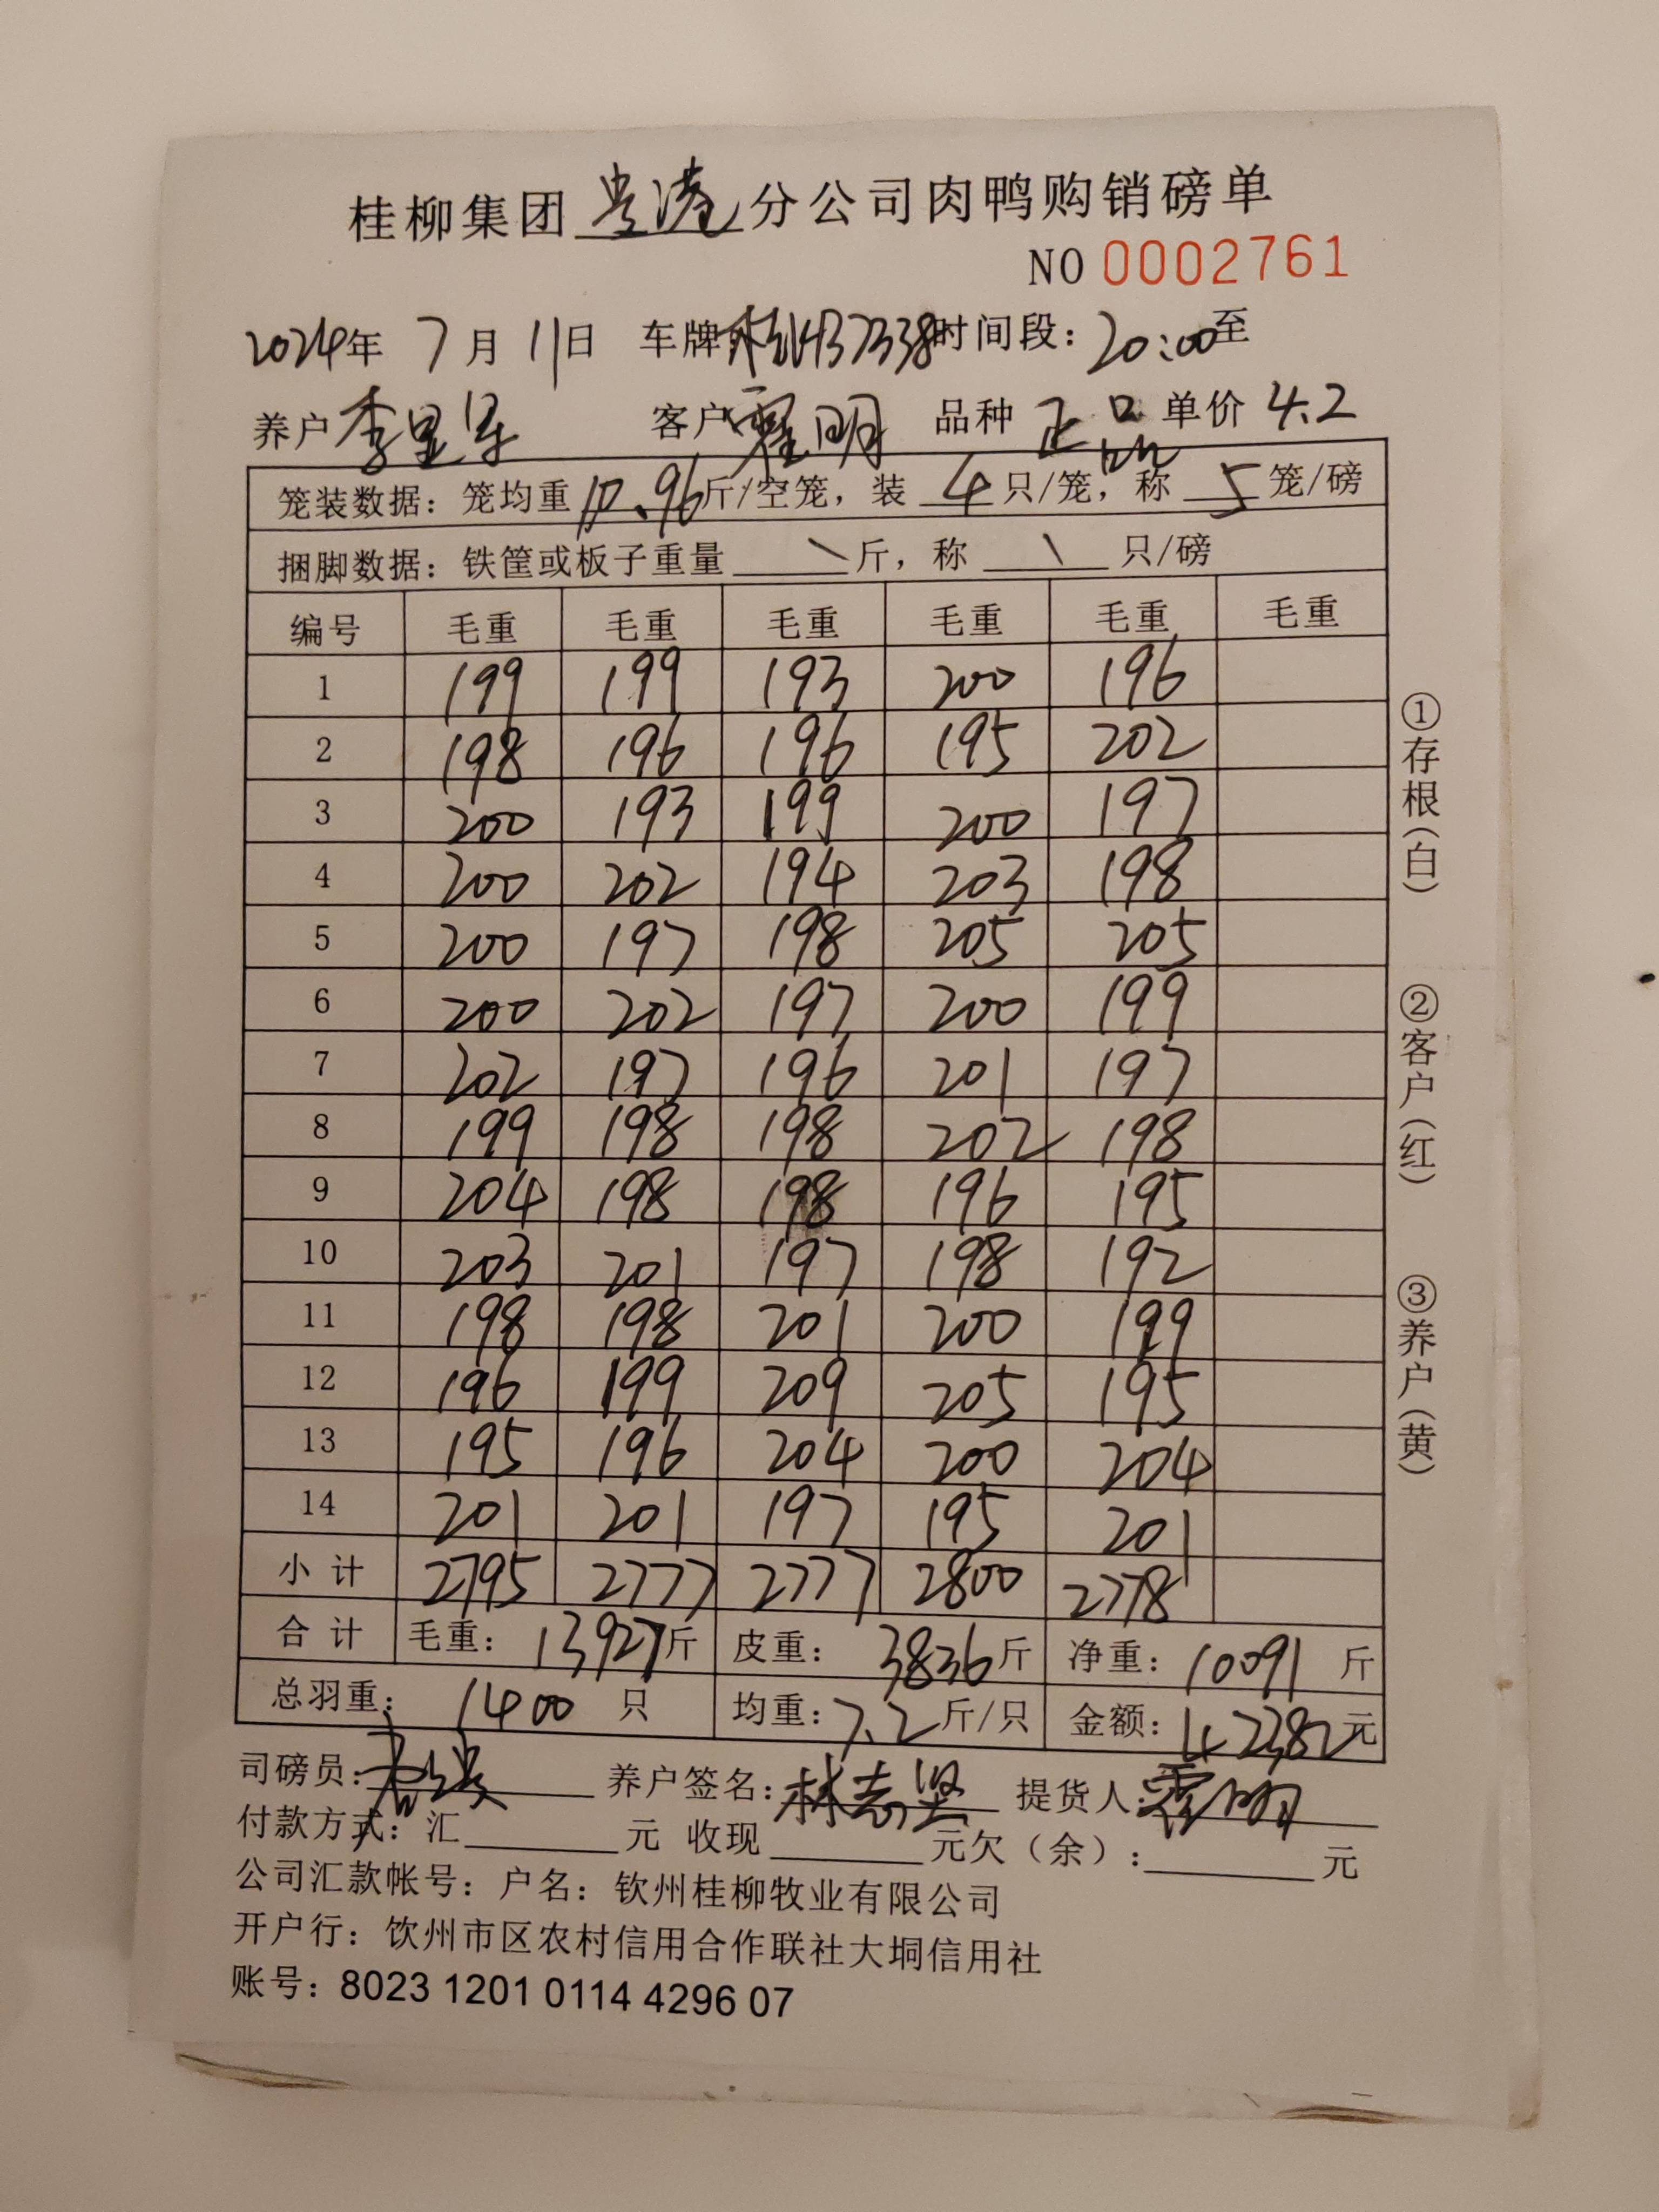 桂柳集团 贵港 分公司肉鸭购销磅单
NO 0002761
2024年 7月 11日 车牌 时间段：20:00至
养户 李 客户 霍明 品种 正品 单价 4.2
笼装数据：笼均重 10.96 斤/空笼，装 4 只/笼，称 5 笼/磅
捆脚数据：铁筐或板子重量 \ 斤，称 \ 只/磅
编号 毛重 毛重 毛重 毛重 毛重 毛重
1 199 199 193 200 196
2 198 196 196 195 202
3 200 193 199 200 197
4 200 202 194 203 198
5 200 197 198 205 205
6 200 202 197 200 199
7 202 197 196 201 197
8 199 198 198 202 198
9 204 198 198 196 195
10 203 201 197 198 192
11 198 198 201 200 199
12 196 199 209 205 195
13 195 196 204 200 204
14 201 201 197 195 201
小计 2795 2777 2777 2800 2778
合计 毛重：13927斤 皮重：3836斤 净重：10091 斤
总羽重：1400 只 均重：7.2斤/只 金额：42382元
司磅员： 养户签名：林志坚 提货人：霍明
付款方式：汇 元 收现 元欠（余）： 元
公司汇款帐号：户名：钦州桂柳牧业有限公司
开户行：饮州市区农村信用合作联社大垌信用社
账号：8023 1201 0114 4296 07
①存根（白）
②客户（红）
③养户（黄）